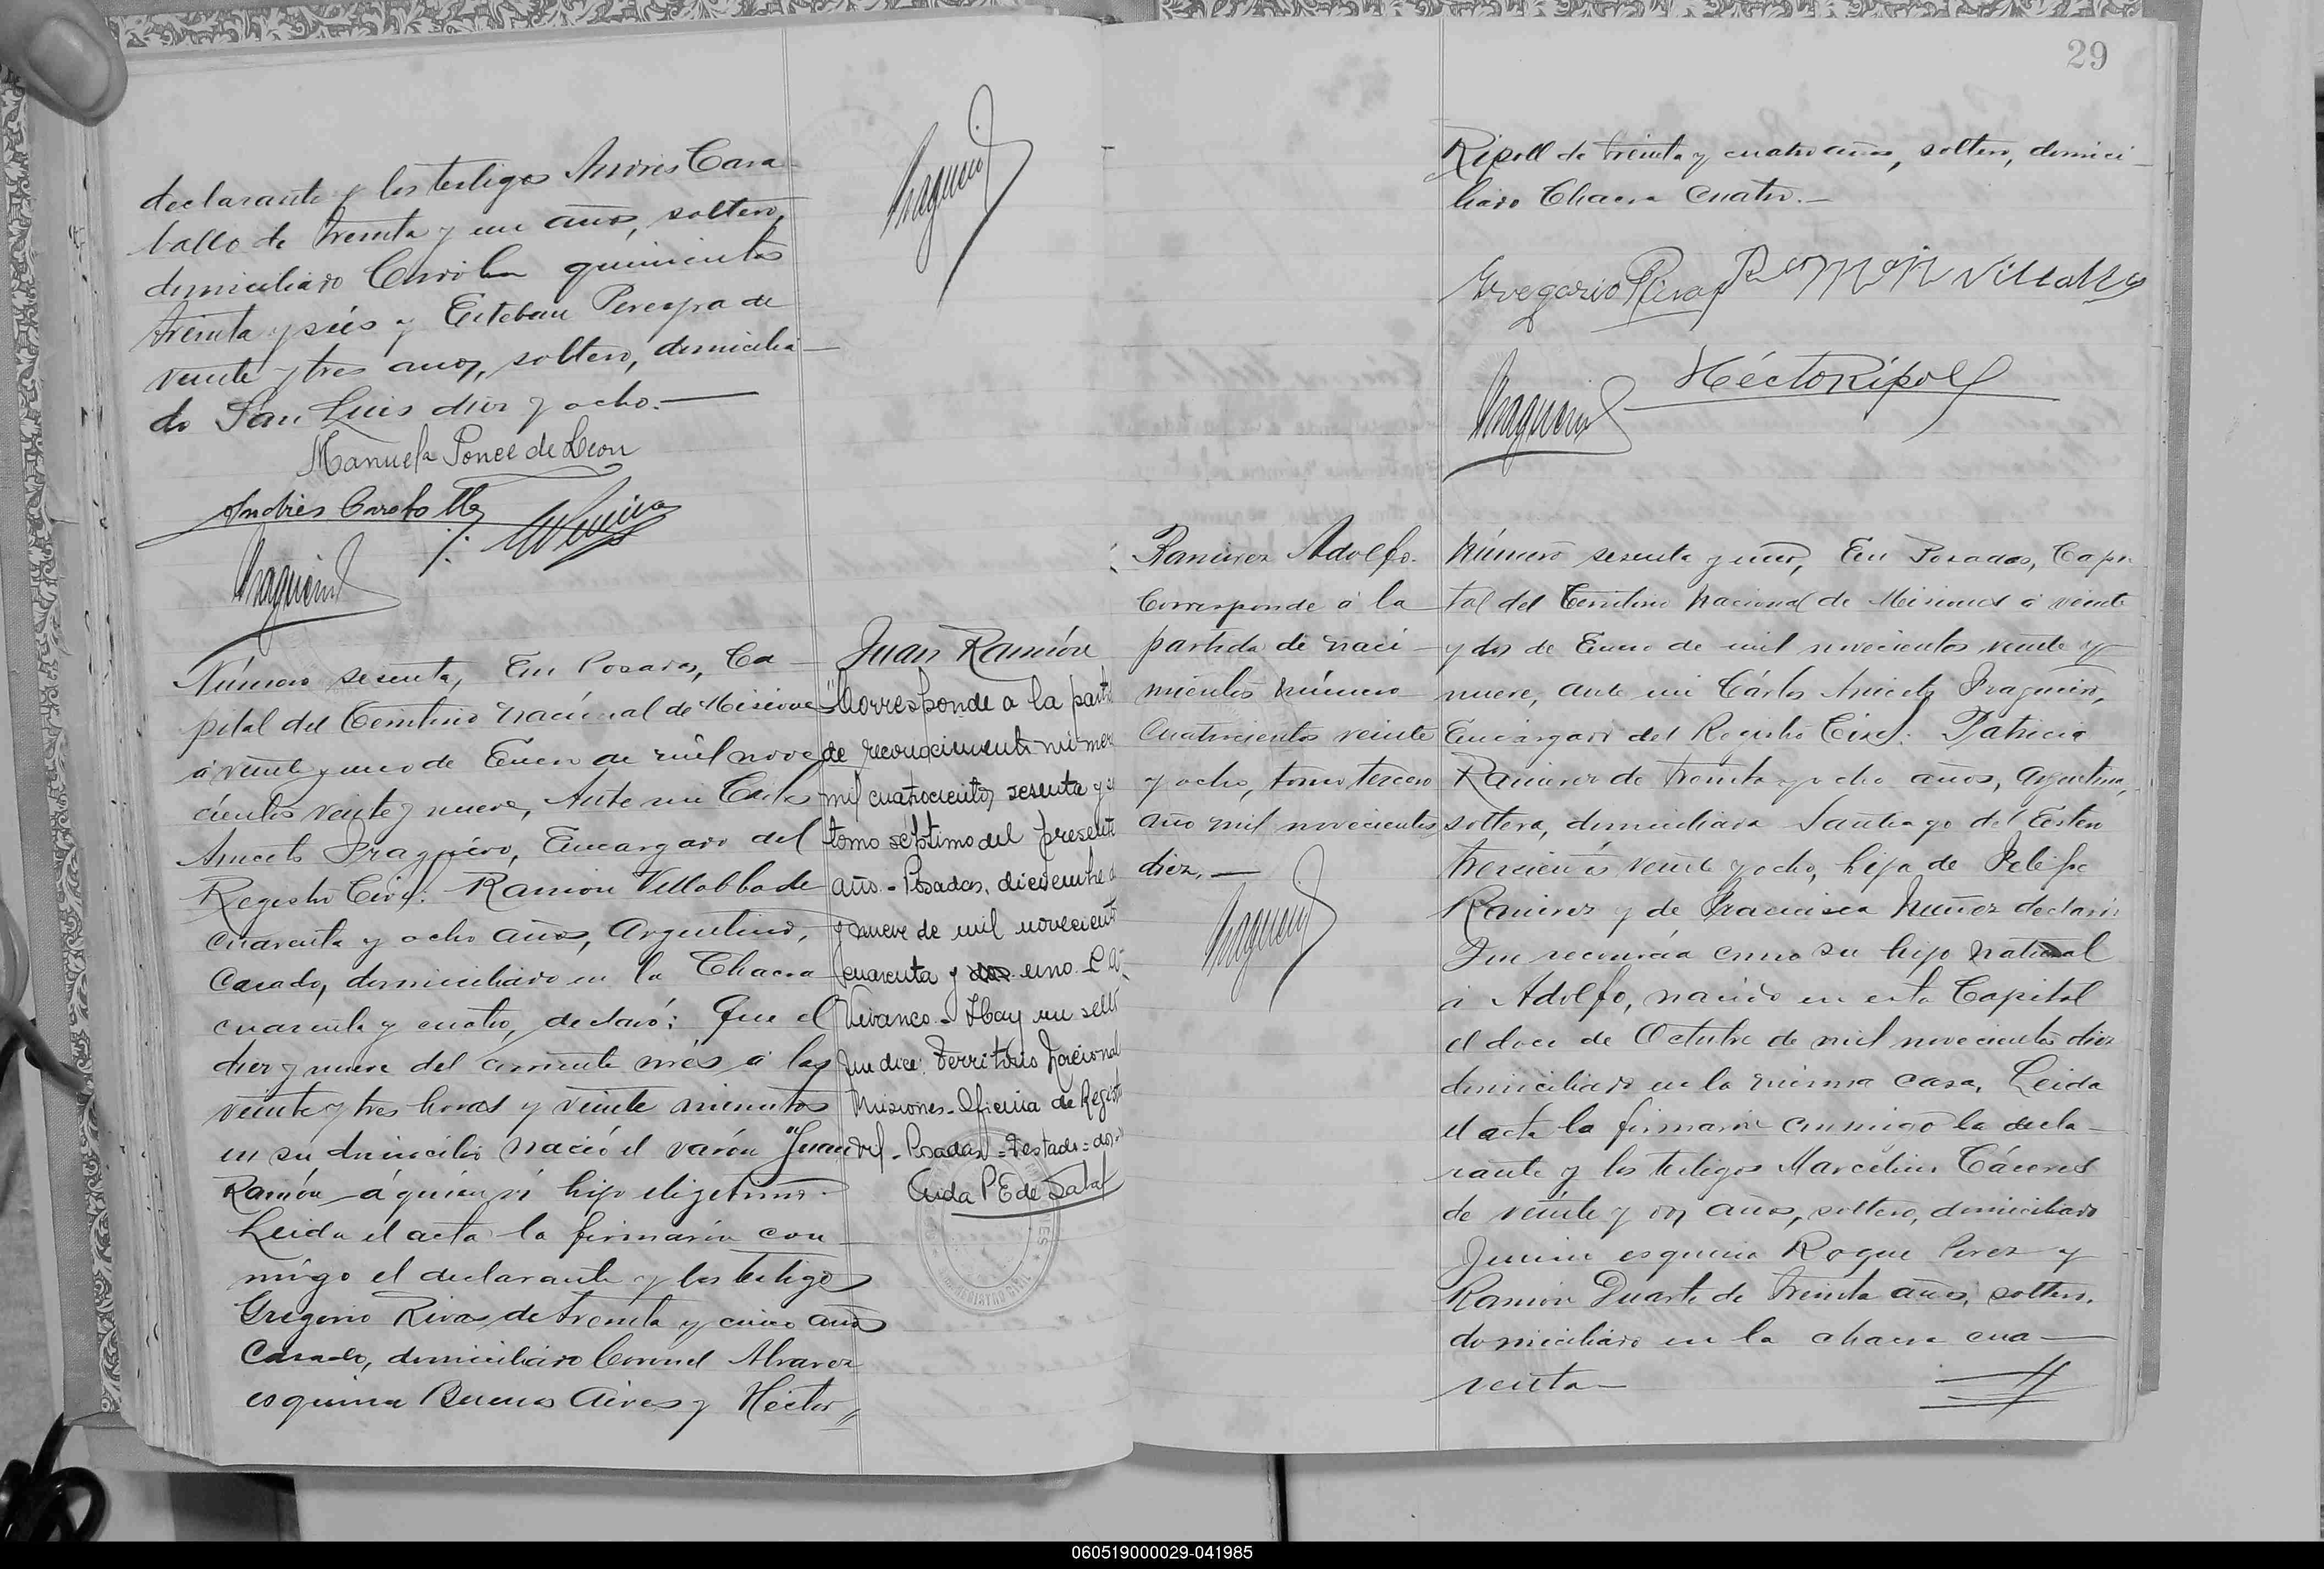 declarante y los testigos Andrés Cara-
ballo de treinta y un años, soltero,
domiciliado Córdoba quinientos
treinta y seis y Esteban Pereyra de
veinte y tres años, soltero, domicilia-
do San Luis diez y ocho.-
Manuela Ponce de Leon
Andrés Caraballo
Número sesenta, En Posadas, Ca-
pital del Territorio Nacional de Misiones
á veinte y uno de Enero de mil nove
cientos veinte y nueve, Ante mi Carlos
Aniceto Fragueiro, Encargado del
Registro Civil: Ramon Villalba de
cuarenta y ocho años, Argentino,
casado, domiciliado en la Chacra
cuarenta y cuatro, declaró: Que el
diez y nueve del corriente mes á las
veinte y tres horas y veinte minutos
en su domicilio nació el varón "Juan
Ramón á quien ví hijo ilegítimo.
Leida el acta la firmarón con-
migo el declarante y los testigos
Gregorio Rivas de treinta y cinco años
casado, domiciliado Coronel Alvarez
esquina Buenos Aires y Hector
Juan Ramón
"Corresponde a la parti
de reconocimiento número
mil cuatrocientos sesenta y
tomo séptimo del presente
año.- Posadas, diciembre
y nueve de mil novecientos
cuarenta y dos uno.-
Vivanco.- Hay un sello
que dice: Territorio Nacional
Misiones.- Oficina de Registro
vil.- Posadas = Testado = dos
Aida P E de Sala
REGISTRO CIVIL
29
Ripoll de treinta y cuatro años, soltero, domici-
liado Chacra Cuatro.-
Gregorio Rivas Ramón Villalba
Héctor Ripoll
Ramirez Adolfo.
Corresponde á la
partida de naci-
mientos número
cuatrocientos veinte
y ocho, tomo tercero
año mil novecientos
diez.-
Número sesenta y uno, En Posadas, Capi-
tal del Territorio Nacional de Misiones á veinte
y dos de Enero de mil novecientos veinte y
nueve, ante mi Cárlos Aniceto Fragueiro,
Encargado del Registro Civil: Patricia
Ramirez de treinta y ocho años, argentina,
soltera, domiciliada Santiago del Estero
trescientos veinte y ocho, hija de Felipe
Ramirez y de Francisca Nuñez declaró:
Que reconocía como su hijo natural
á Adolfo, nacido en esta Capital
el doce de Octubre de mil novecientos diez
domiciliado en la misma casa, Leida
el acta la firmaron conmigo la decla-
rante y los testigos Marcelino Cáceres
de veinte y dos años, soltero, domiciliado
Junin esquina Roque Perez y
Ramón Duarte de treinta años, soltero,
domiciliado en la chacra cua-
renta-
060519000029-041985